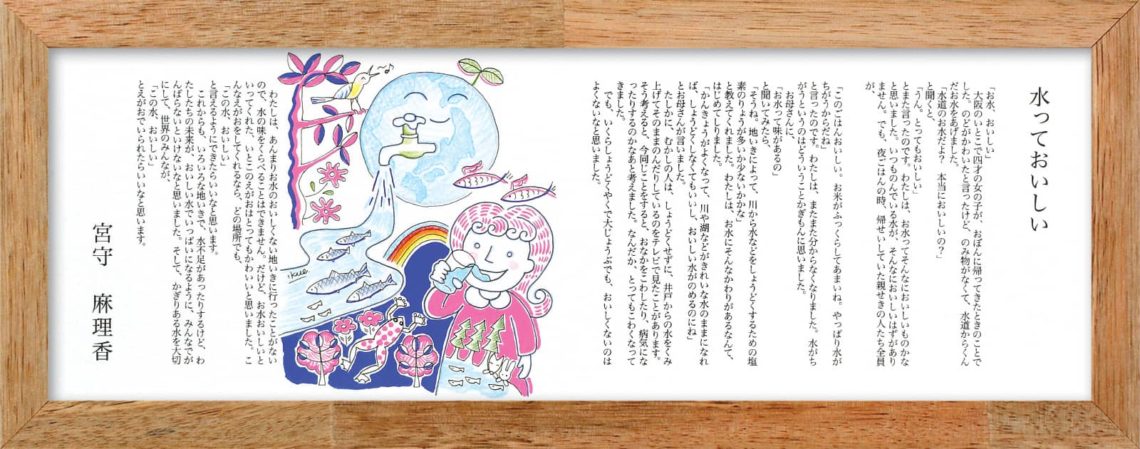 水っておいしい
「お水、おいしい」
大阪のいとこで四才の女の子が、おぼんに帰ってきたときのことで
した。のどがかわいたと言ったけど、のみ物がなくて、水道からくん
だお水をあげました。
「水道のお水だよ？本当においしいの？」
と聞くと、
「うん。とってもおいしい」
とまた言ったのです。わたしは、お水ってそんなにおいしいものかな
と思いました。いつものんでいる水が、そんなにおいしいはずがあり
ません。でも、夜ごはんの時、帰せいしていた親せきの人たち全員
が、
「このごはんおいしい。お米がふっくらしてあまいね。やっぱり水が
ちがうからだね」
と言ったのです。わたしは、またまた分からなくなりました。水がち
がうというのはどういうことかぎもんに思いました。
お母さんに、
「お水って味があるの」
と聞いてみたら、
「そうね。地いきによって、川から水などをしょうどくするための塩
素のりょうが多いか少ないかかな」
と教えてくれました。わたしは、お水にそんなかわりがあるなんて、
はじめてしりました。
「かんきょうがよくなって、川や湖などがきれいな水のままになれ
ば、しょうどくしなくてもいいし、おいしい水がのめるのにね」
とお母さんが言いました。
たしかに、むかしの人は、しょうどくせずに、井戸からの水をくみ
上げてそのままのんだりしているのをテレビで見たことがあります。
そう考えると、今同じことをすると、おなかをこわしたり、病気にな
ったりするのかなあと考えました。なんだか、とってもこわくなって
きました。
でも、いくらしょうどくやくで大じょうぶでも、おいしくないのは
よくないなと思いました。
わたしは、あんまりお水のおいしくない地いきに行ったことがない
ので、水の味をくらべることはできません。だけど、お水おいしいと
いってくれた、いとこのえがおはとってもかわいいと思いました。こ
んなえがおをしてくれるなら、どの場所でも、
「この水、おいしい」
と言えるようにできたらいいなと思います。
これからも、いろいろな地いきで、水不足があったりするけど、わ
たしたちの未来が、おいしい水でいっぱいになるように、みんなでが
んばらないといけないなと思いました。そして、かぎりある水を大切
にして、世界のみんなが、
「この水、おいしい」
とえがおでいられたらいいなと思います。
宮守 麻理香